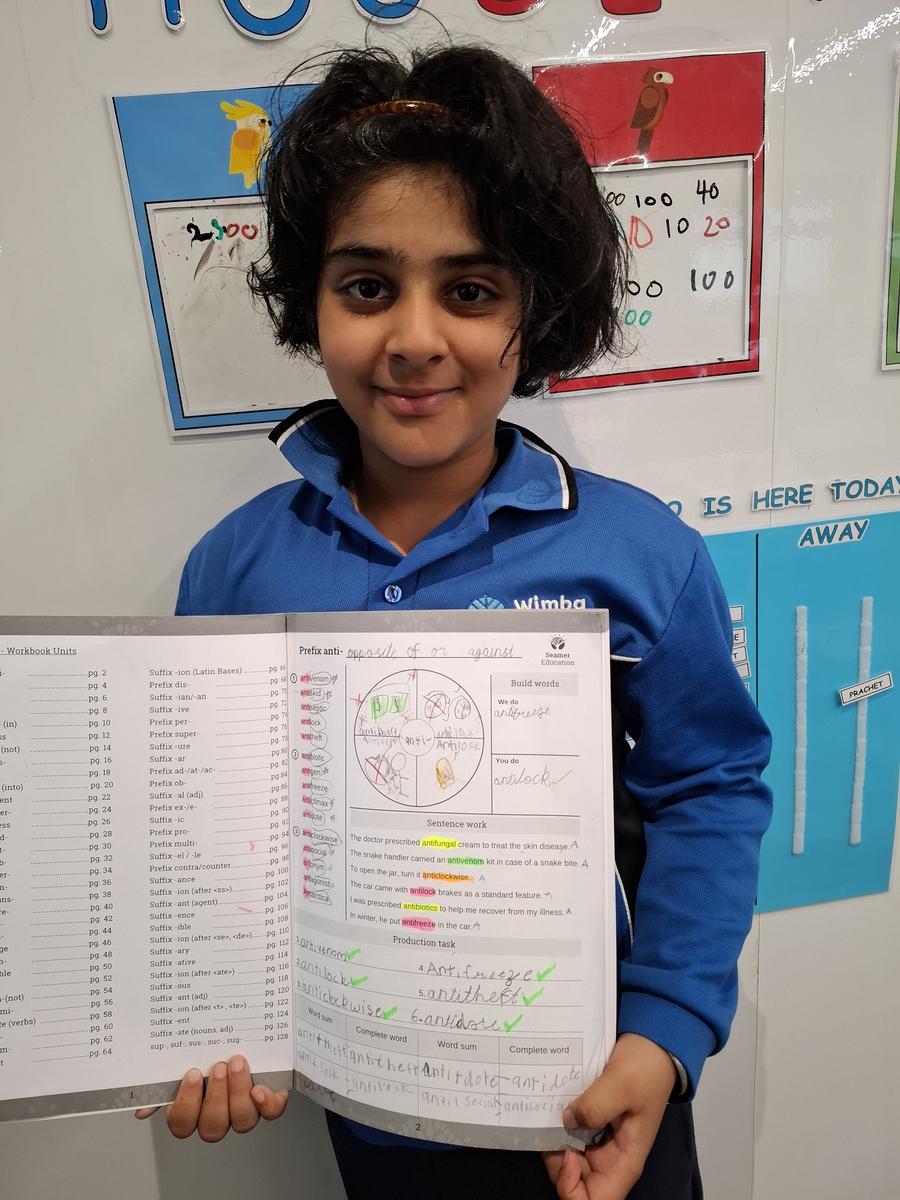 2300
00 100 40
10 10 20
00 100
00
IS HERE TODAY
AWAY
PRACHET
Wimba
- Workbook Units
pg. 2
pg. 4
pg. 6
pg. 8
(in) pg. 10
pg. 12
(not) pg. 14
pg. 16
pg. 18
(into) pg. 20
pg. 22
pg. 24
pg. 26
pg. 28
pg. 30
pg. 32
pg. 34
pg. 36
pg. 38
pg. 40
pg. 42
pg. 44
pg. 46
pg. 48
pg. 50
pg. 52
(not) pg. 54
pg. 56
(verbs) pg. 58
pg. 60
pg. 62
pg. 64
Suffix -ion (Latin Bases) pg. 66
Prefix dis- pg. 68
Suffix -ian/-an pg. 70
Suffix -ive pg. 72
Prefix per- pg. 74
Prefix super- pg. 76
Suffix -ure pg. 78
Suffix -ar pg. 80
Prefix ad-/at-/ac- pg. 82
Prefix ob- pg. 84
Suffix -al (adj) pg. 86
Prefix ex-/e- pg. 88
Suffix -ic pg. 90
Prefix pro- pg. 92
Prefix multi- pg. 94
Suffix -el / -le pg. 96
Prefix contra/counter pg. 98
Suffix -ance pg. 100
Suffix -ion (after <ss>) pg. 102
Suffix -ant (agent) pg. 104
Suffix -ence pg. 106
Suffix -ible pg. 108
Suffix -ion (after <se>, <de>) pg. 110
Suffix -ary pg. 112
Suffix -ative pg. 114
Suffix -ion (after <ate>) pg. 116
Suffix -ous pg. 118
Suffix -ant (adj) pg. 120
Suffix -ion (after <t>, <te>) pg. 122
Suffix -ent pg. 124
Suffix -ate (nouns, adj) pg. 126
sup-, suf-, sus-, suc-, sug- pg. 128
1
Prefix anti- opposite of or against
Seamer
Education
1 antivenom
antiskid
antiseptic
antilock
antitheft
2 antibiotic
antigen
antifreeze
anticlimax
antidote
3 anticlockwise
antisocial
antonym
antagonist
Antarctica
antitheft
anti-
antilock
Build words
We do
antifreeze
You do
antilock
Sentence work
The doctor prescribed antifungal cream to treat the skin disease.
The snake handler carried an antivenom kit in case of a snake bite.
To open the jar, turn it anticlockwise.
The car came with antilock brakes as a standard feature.
I was prescribed antibiotics to help me recover from my illness.
In winter, he put antifreeze in the car.
Production task
1. antivenom
2. antilock
3. anticlockwise
4. Antifreeze
5. antitheft
6. antidote
Word sum Complete word Word sum Complete word
anti+theft antitheft anti+dote antidote
anti+lock antilock anti+social antisocial
2